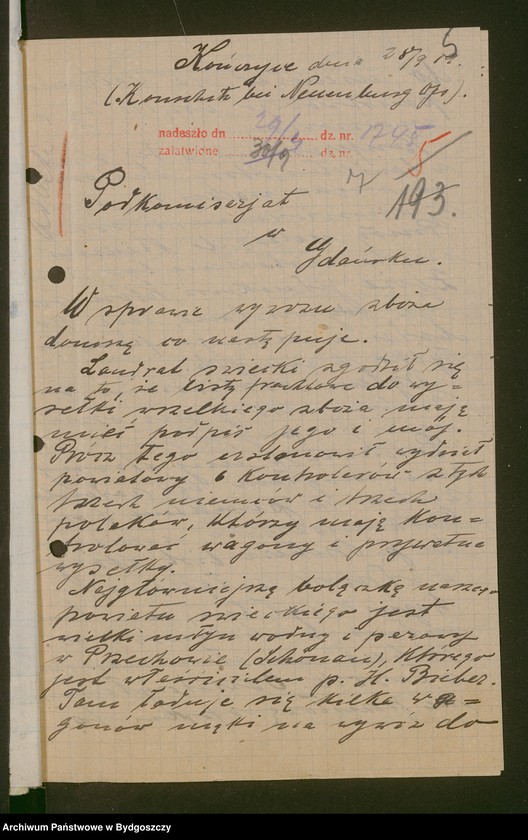 Kończyce dnia 28/9 19.
5
(Konschitz bei Neuenburg Wpr).
nadeszło dn 29/9 dz. nr. 1295
załatwione 30/9 dz. nr.
5
193.
Podkomisarjat
w
Gdańsku.
W sprawie wywozu zboża
donoszę co następuje.
Landrat świecki zgodził się
na to, że listy frachtowe do wy=
sełki wszelkiego zboża mają
mieć podpis jego i mój.
Prócz tego ustanowił wydział
powiatowy 6 kontrolerów z tych
trzech niemców i trzech
polaków, którzy mają kon=
trolować wagony i prywatne
wysełki.
Najgłówniejszą bolączką naszego
powiatu świeckiego jest
wielki młyn wodny i parowy
w Przechowie (Schönau), którego
jest właścicielem p. H. Bieber.
Tam ładuje się kilka wa=
gonów mąki na wywóz do
Archiwum Państwowe w Bydgoszczy